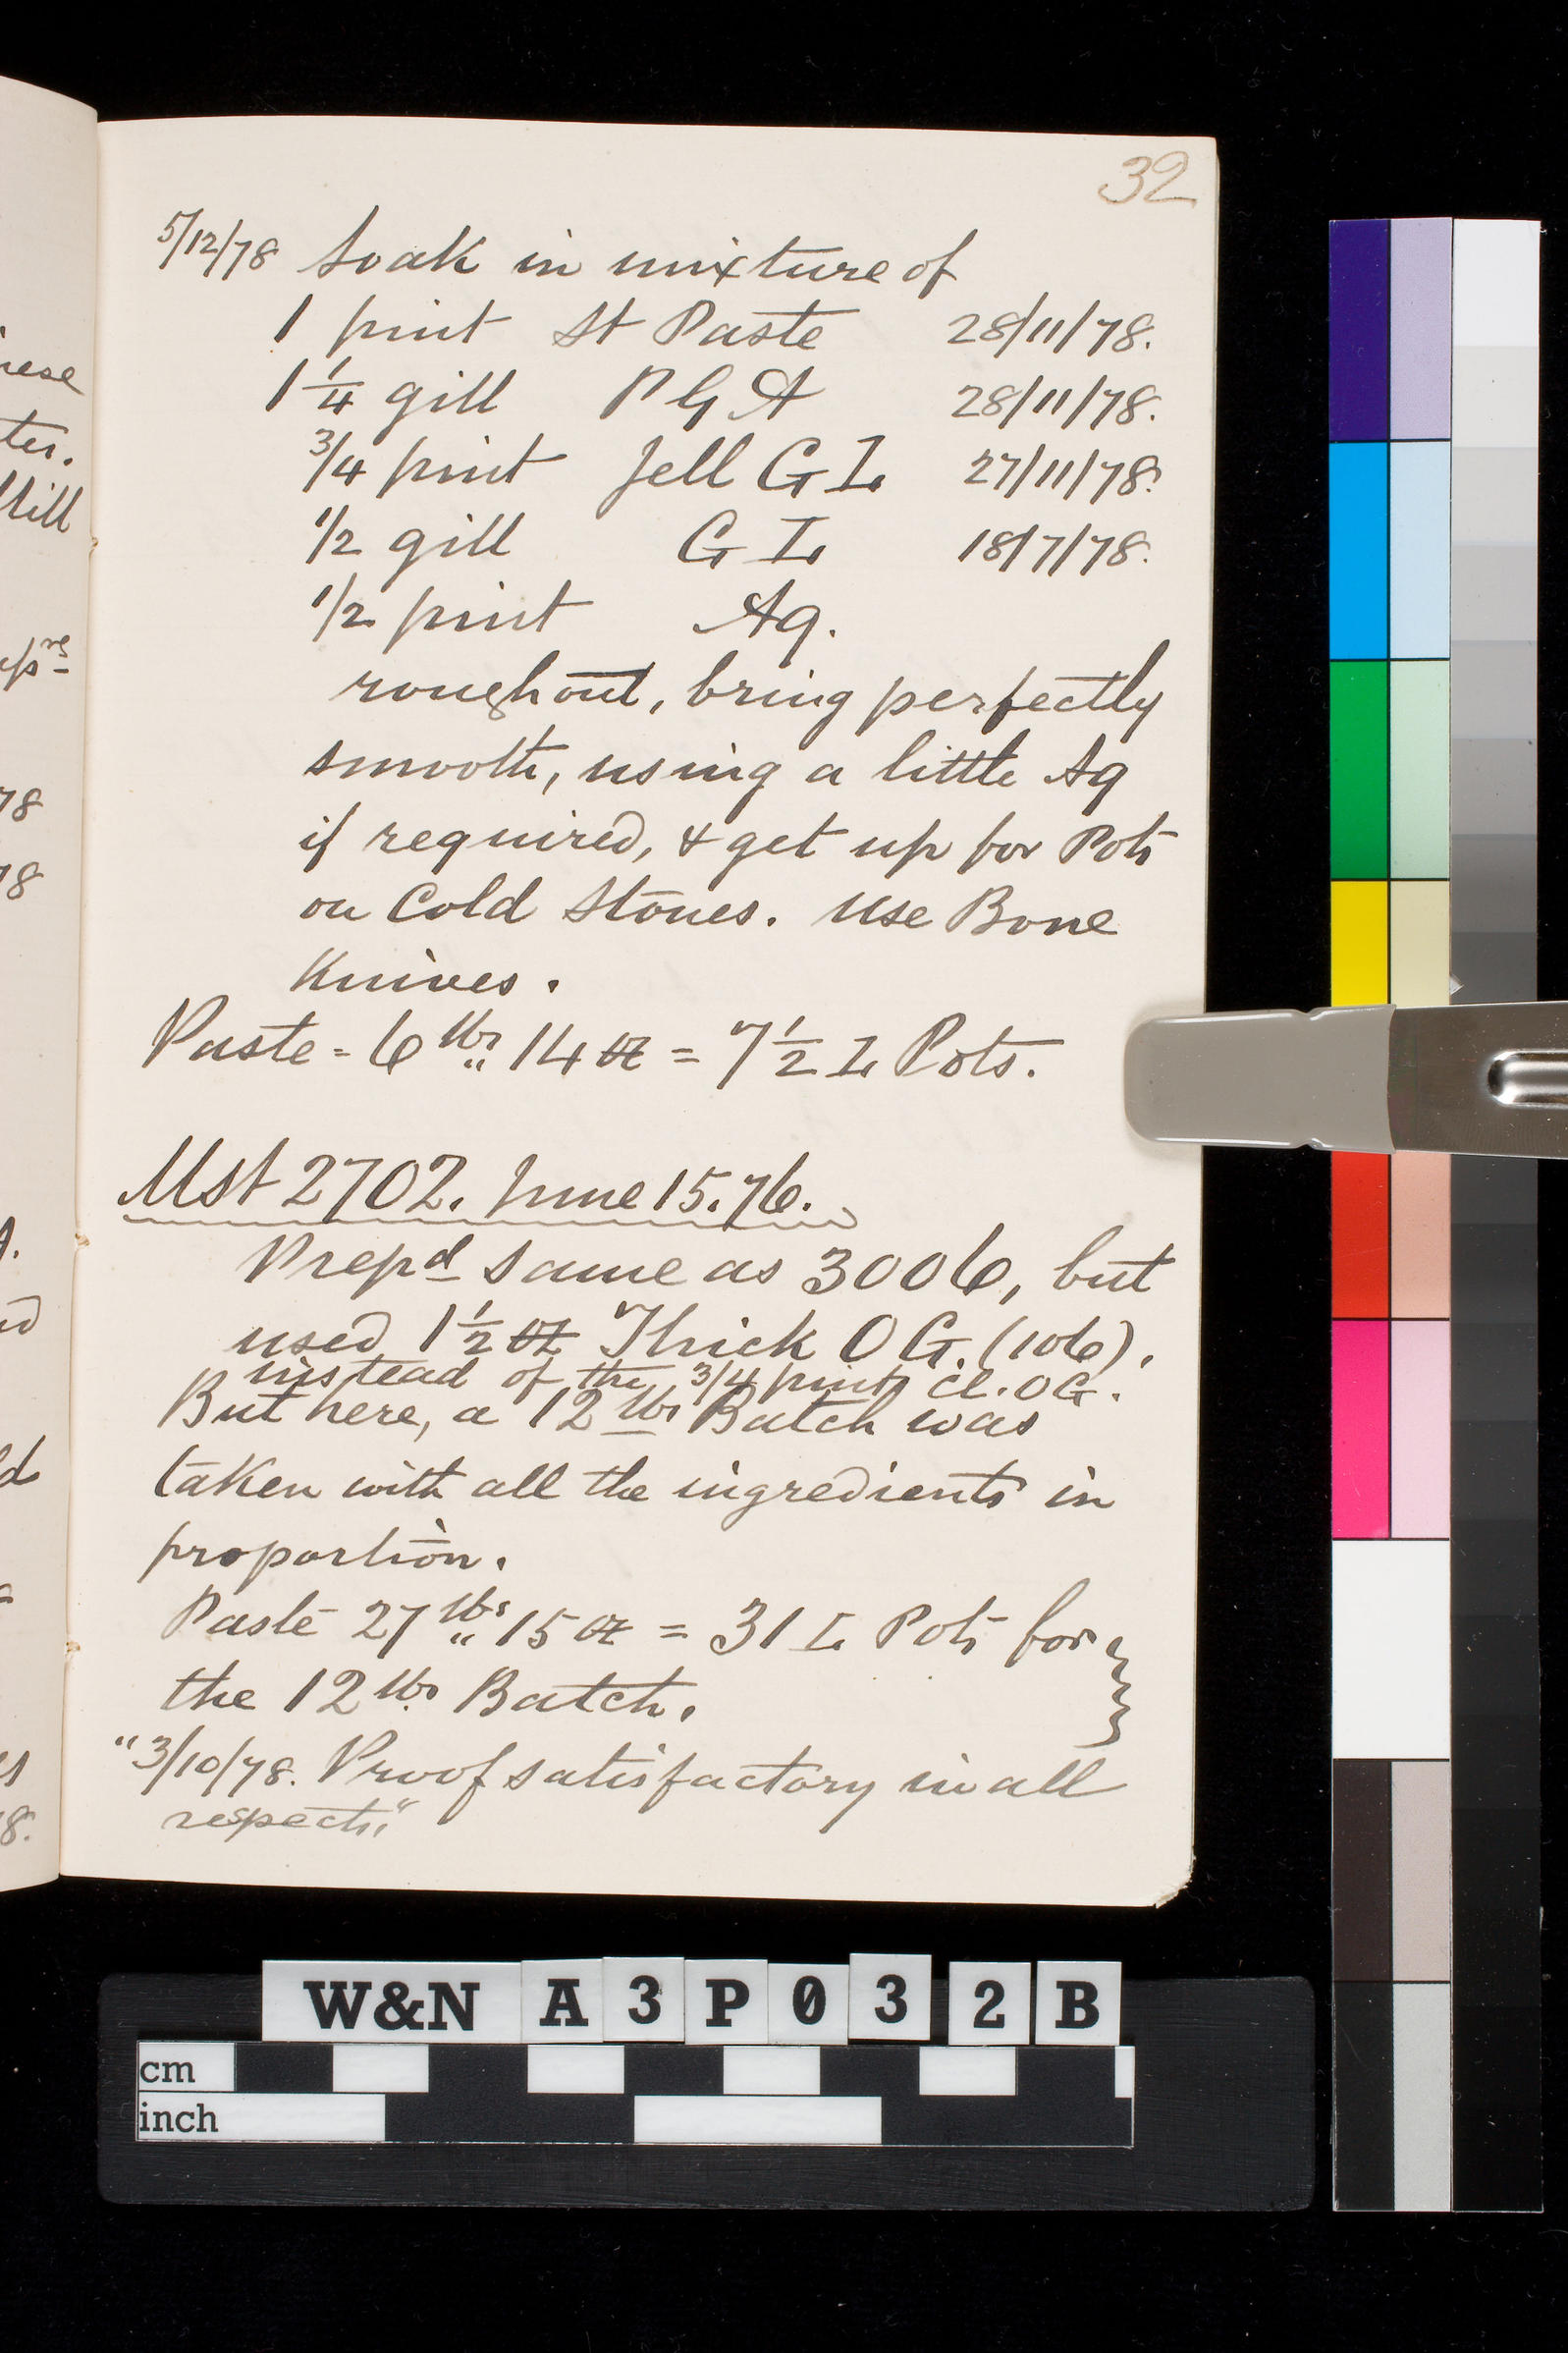 32
5/12/78 Soak in mixture of
1 pint St Paste 28/11/78.
1 1/4 gill P G A 28/11/78.
3/4 pint Jell G L 27/11/78.
1/2 gill G L 18/7/78.
1/2 pint Aq.
rough out, bring perfectly
smooth, using a little Aq
if required, & get up for Pots
on Cold Stones. Use Bone
Knives.
Paste = 6 lbs " 14 oz = 7 1/2 L Pots.
Mst 2702. June 15.76.
Prepd same as 3006, but
used 1 1/2 oz Thick O G. (106),
instead of the 3/4 pint Cl. O G.
But here, a 12 lbs Batch was
taken with all the ingredients in
proportion.
Paste 27 lbs " 15 oz = 31 L Pots for
the 12 lbs Batch.
"3/10/78. Proof satisfactory in all
respects."
nese
ter.
78
78
8.
W&N A 3 P 0 3 2 B
cm
inch